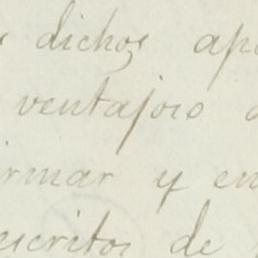 dichos ap
ventajoso
irmar y en
escritos de